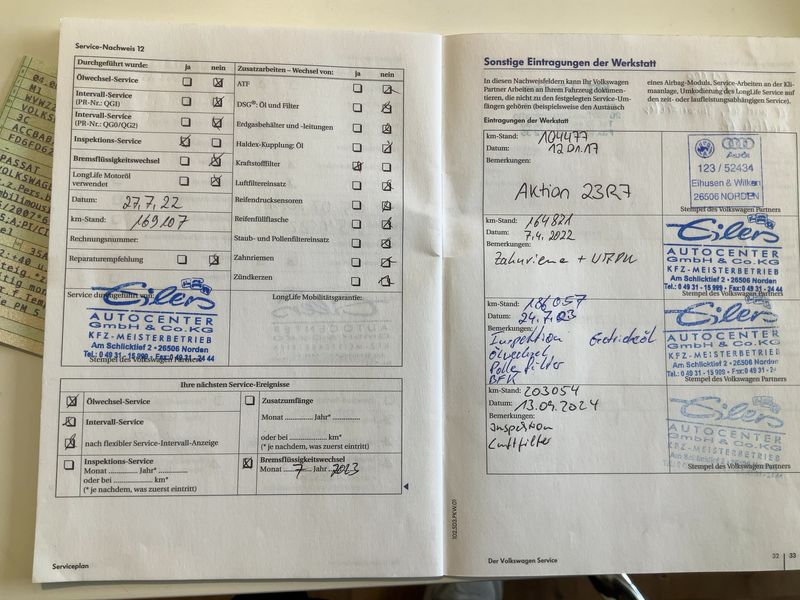 Service-Nachweis 12
Durchgeführt wurde: ja nein
Ölwechsel-Service
Intervall-Service
(PR-Nr.: QG1)
Intervall-Service
(PR-Nr.: QG0/QG2)
Inspektions-Service
Bremsflüssigkeitswechsel
LongLife Motoröl
verwendet
Datum: 27.7.22
km-Stand: 169107
Rechnungsnummer:
Reparaturempfehlung
Zusatzarbeiten – Wechsel von: ja nein
ATF
DSG®: Öl und Filter
Erdgasbehälter und -leitungen
Haldex-Kupplung: Öl
Kraftstofffilter
Luftfiltereinsatz
Reifendrucksensoren
Reifenfüllflasche
Staub- und Pollenfiltereinsatz
Zahnriemen
Zündkerzen
Service durchgeführt von:
Eilers
AUTOCENTER
GmbH & Co.KG
KFZ-MEISTERBETRIEB
Am Schlicktief 2 • 26506 Norden
Tel.: 0 49 31 - 15 999 • Fax: 0 49 31 - 24 44
Stempel des Volkswagen Partners
LongLife Mobilitätsgarantie:
Ihre nächsten Service-Ereignisse
Ölwechsel-Service
Intervall-Service
nach flexibler Service-Intervall-Anzeige
Inspektions-Service
Monat Jahr*
oder bei km*
(* je nachdem, was zuerst eintritt)
Zusatzumfänge
Monat Jahr*
oder bei km*
(* je nachdem, was zuerst eintritt)
Bremsflüssigkeitswechsel
Monat 7 Jahr 2023
Serviceplan
Sonstige Eintragungen der Werkstatt
In diesen Nachweisfeldern kann Ihr Volkswagen
Partner Arbeiten an Ihrem Fahrzeug dokumen-
tieren, die nicht zu den festgelegten Service-Um-
fängen gehören (beispielsweise den Austausch
eines Airbag-Moduls, Service-Arbeiten an der Kli-
maanlage, Umkodierung des LongLife Service auf
den zeit- oder laufleistungsabhängigen Service).
Eintragungen der Werkstatt
km-Stand: 104477
Datum: 12.01.17
Bemerkungen:
Aktion 23R7
Audi
123 / 52434
Eihusen & Wilken
26506 NORDEN
Stempel des Volkswagen Partners
km-Stand: 164821
Datum: 7.4.2022
Bemerkungen:
Eilers
AUTOCENTER
GmbH & Co.KG
KFZ-MEISTERBETRIEB
Am Schlicktief 2 • 26506 Norden
Tel.: 0 49 31 - 15 999 • Fax: 0 49 31 - 24 44
Stempel des Volkswagen Partners
km-Stand: 186057
Datum: 24.7.23
Bemerkungen:
Inspektion Getriebeöl
Ölwechsel
Pollenfilter
BFK
Eilers
AUTOCENTER
GmbH & Co.KG
KFZ-MEISTERBETRIEB
Am Schlicktief 2 • 26506 Norden
Stempel des Volkswagen Partners
km-Stand: 203054
Datum: 13.09.2024
Bemerkungen:
Inspektion
Luftfilter
Eilers
AUTOCENTER
GmbH & Co.KG
KFZ-MEISTERBETRIEB
Stempel des Volkswagen Partners
102.5D3.PKW.01
Der Volkswagen Service
32 33